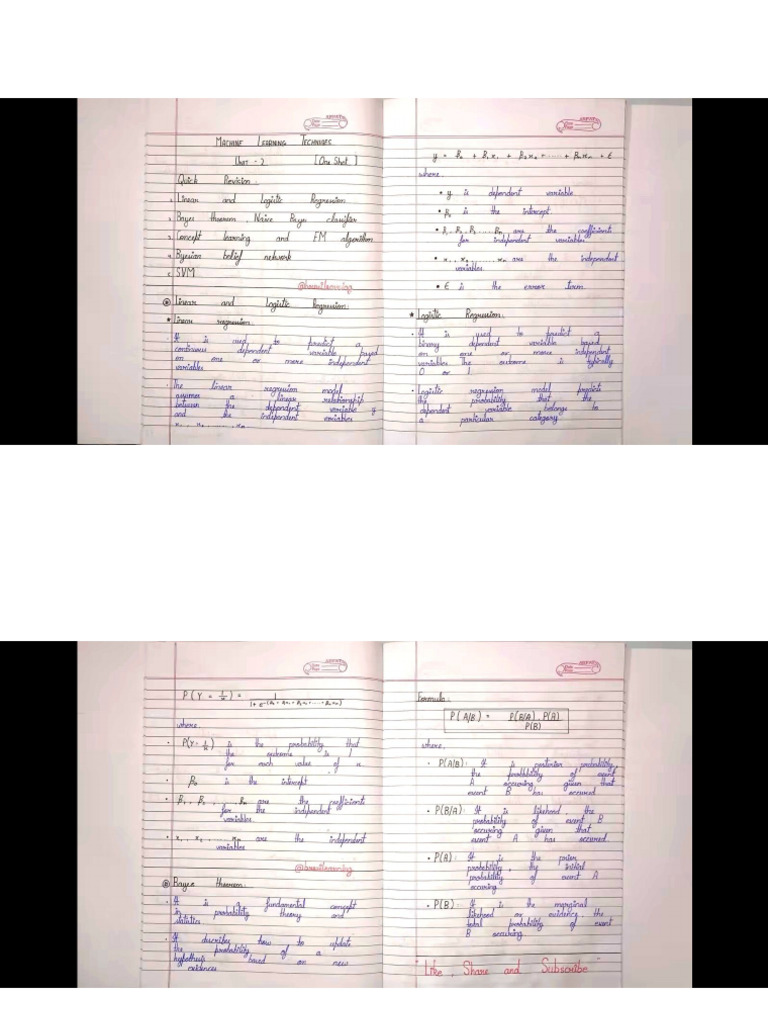 MACHINE LEARNING TECHNIQUES
Unit - 2 [One Shot]
Quick Revision:
1. Linear and Logistic Regression
2. Bayes theorem, Naive Bayes classifier
3. Concept learning and EM algorithm
4. Byesian belief network
5. SVM
Linear and Logistic Regression:
* Linear regression:
• It is used to predict a
continuous dependent variable based
on one or more independent
variables
• The linear regression model
assumes a linear relationship
between the dependent variable y
and the independent variables
x₁, x₂, ...., xₙ
y = β₀ + β₁x₁ + β₂x₂ + ..... + βₙxₙ + ε
where,
• y is dependent variable.
• β₀ is the intercept
• β₁, β₂, β₃ ..... βₙ are the coefficient
for independent variables
• x₁, x₂ ........ xₙ are the independent
variables
• ε is the error term.
* Logistic Regression:
• It is used to predict a
binary dependent variable based
on one or more independent
variables. The outcome is typically
0 or 1
• Logistic regression model predict
the probability that the
dependent variable belongs to
a particular category
P(Y = 1/x) = 1 / 1 + e^-(β₀ + β₁x₁ + β₂x₂ + .... + βₙxₙ)
where,
• P(Y = 1/x) is the probability that
the outcome is 1
for each value of x.
• β₀ is the intercept
• β₁, β₂ ..... βₙ are the coefficients
for the independent
variables.
• x₁, x₂, ...... xₙ are the independent
variables
Bayes theorem:
• It is a fundamental concept
in probability theory and
statistics
• It describes how to update
the probability of a
hypothesis based on new
evidences
Formula:
P(A/B) = P(B/A) . P(A) / P(B)
where,
• P(A/B): It is posterior probability,
the probability of event
A occuring given that
event B has occured
• P(B/A): It is likehood the
probability of event B
occuring given that
event A has occured.
• P(A): It is the prior
probability, the initial
probability of event A
occuring.
• P(B): It is the marginal
likehood or evidence the
total probability of event
B occuring.
"Like, Share and Subscribe"